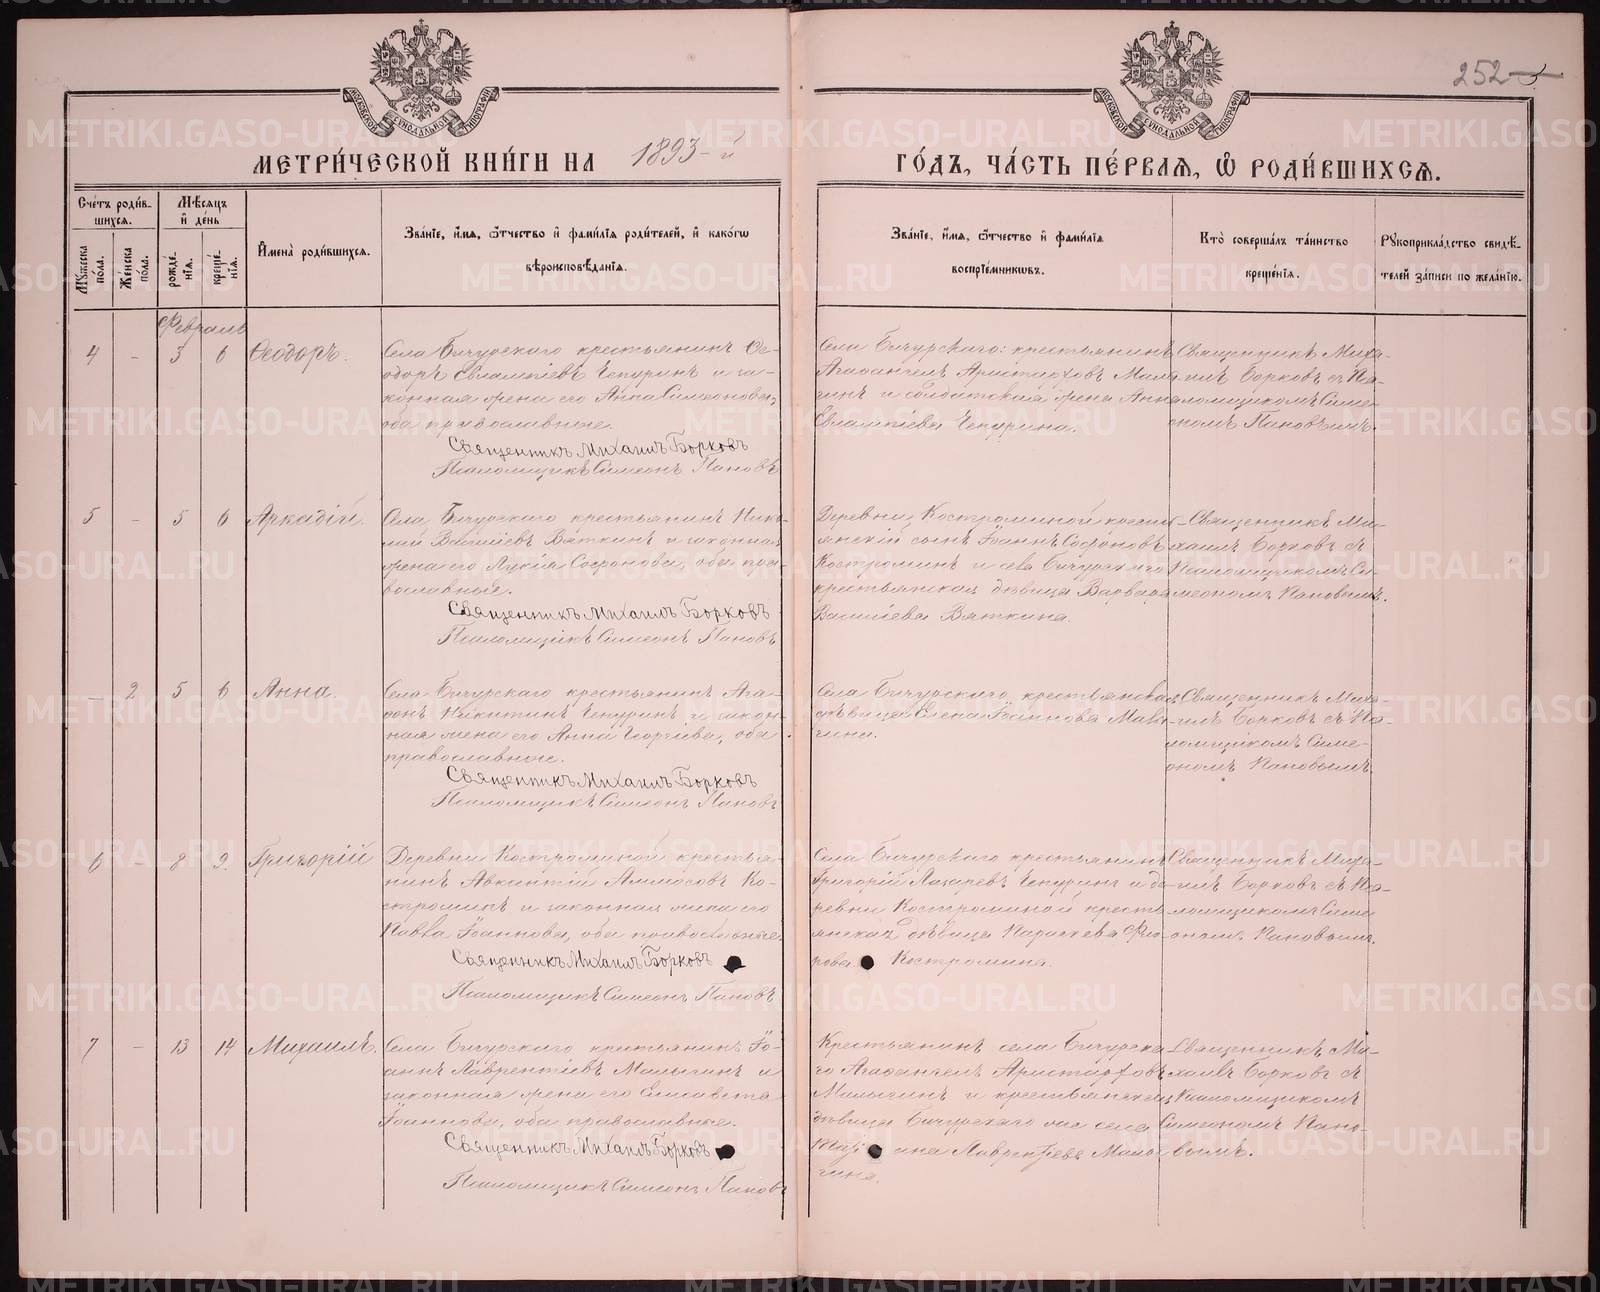 252
МОСКОВСКОЙ СѴНОДАЛЬНОЙ ТИПОГРАФІИ
МОСКОВСКОЙ СѴНОДАЛЬНОЙ ТИПОГРАФІИ
МЕТРИ́ЧЕСКОЙ КНИ́ГИ НА 1893-й
ГО́ДЪ, ЧА́СТЬ ПЕ́РВАѦ, Ѡ РОДИ́ВШИХСѦ.
Сче́тъ роди́в-
шихсѧ.
Мѣ́сѧцъ
и де́нь
Мꙋ́жеска по́ла.
Же́нска по́ла.
рожде́-
нїѧ.
креще́-
нїѧ.
И҆мена̀ роди́вшихсѧ.
Зва́нїе, и҆́мѧ, ѻ҆́тчество и҆ фами́лїѧ роди́телей, и҆ како́гѡ
вѣроисповѣ́данїѧ.
Зва́нїе, и҆́мѧ, ѻ҆́тчество и҆ фами́лїѧ
воспрїе́мникѡвъ.
Кто̀ соверша́лъ та́инство
креще́нїѧ.
Рꙋкоприкла́дство свидѣ́-
телей за́писи по жела́нїю.
Февраль
4 - 3 6 Ѳеодоръ.
Села Бичурскаго крестьянинъ Ѳе-
одоръ Евлампіевъ Чепуринъ и за-
конная жена его Анна Симеоновна,
оба православные.
Священникъ Михаилъ Борковъ
Псаломщикъ Симеонъ Пановъ
Села Бичурскаго: крестьянинъ
Агаѳангелъ Аристарховъ Малы-
гинъ и солдатская жена Анна
Евлампіева Чепурина.
Священникъ Миха-
илъ Борковъ съ Пса-
ломщикомъ Симе-
ономъ Пановымъ.
5 - 5 6 Аркадій.
Села Бичурскаго крестьянинъ Нико-
лай Васильевъ Вяткинъ и законная
жена его Лукія Софонова, оба пра-
вославные.
Священникъ Михаилъ Борковъ
Псаломщикъ Симеонъ Пановъ
Деревни Костроминой крестья-
янскій сынъ Іоаннъ Софоновъ
Костроминъ и села Бичурскаго
крестьянская дѣвица Варвара
Васильева Вяткина.
Священникъ Ми-
хаилъ Борковъ съ
Псаломщикомъ Си-
меономъ Пановымъ.
- 2 5 6 Анна.
Села Бичурскаго крестьянинъ Ага-
ѳонъ Никитинъ Чепуринъ и закон-
ная жена его Анна Георгіева, оба
православные.
Священникъ Михаилъ Борковъ
Псаломщикъ Симеонъ Пановъ
Села Бичурскаго крестьянская
дѣвица Елена Іоаннова Малы-
гина.
Священникъ Миха-
илъ Борковъ съ Пса-
ломщикомъ Симе-
ономъ Пановымъ.
6 - 8 9. Григорій
Деревни Костроминой крестья-
нинъ Авксентій Аммосовъ Ко-
строминъ и законная жена его
Павла Іоаннова, оба православные.
Священникъ Михаилъ Борковъ
Псаломщикъ Симеонъ Пановъ
Села Бичурскаго крестьянинъ
Григорій Лазаревъ Чепуринъ и де-
ревни Костроминой кресть-
янская дѣвица Параскева
Костромина.
Священникъ Миха-
илъ Борковъ съ Пса-
ломщикомъ Симе-
ономъ Пановымъ.
7 - 13 14 Михаилъ.
Села Бичурскаго крестьянинъ Іо-
аннъ Лаврентіевъ Малыгинъ и
законная жена его Елисавета
Іоаннова, оба православные.
Священникъ Михаилъ Борковъ
Псаломщикъ Симеонъ Пановъ
Крестьянинъ села Бичурска-
го Агаѳангелъ Аристарховъ
Малыгинъ и крестьянская
дѣвица Бичурскаго села
Лаврентіева Малы-
гина.
Священникъ Ми-
хаилъ Борковъ съ
Псаломщикомъ
Симеономъ Пано-
вымъ.
METRIKI.GASO-URAL.RU